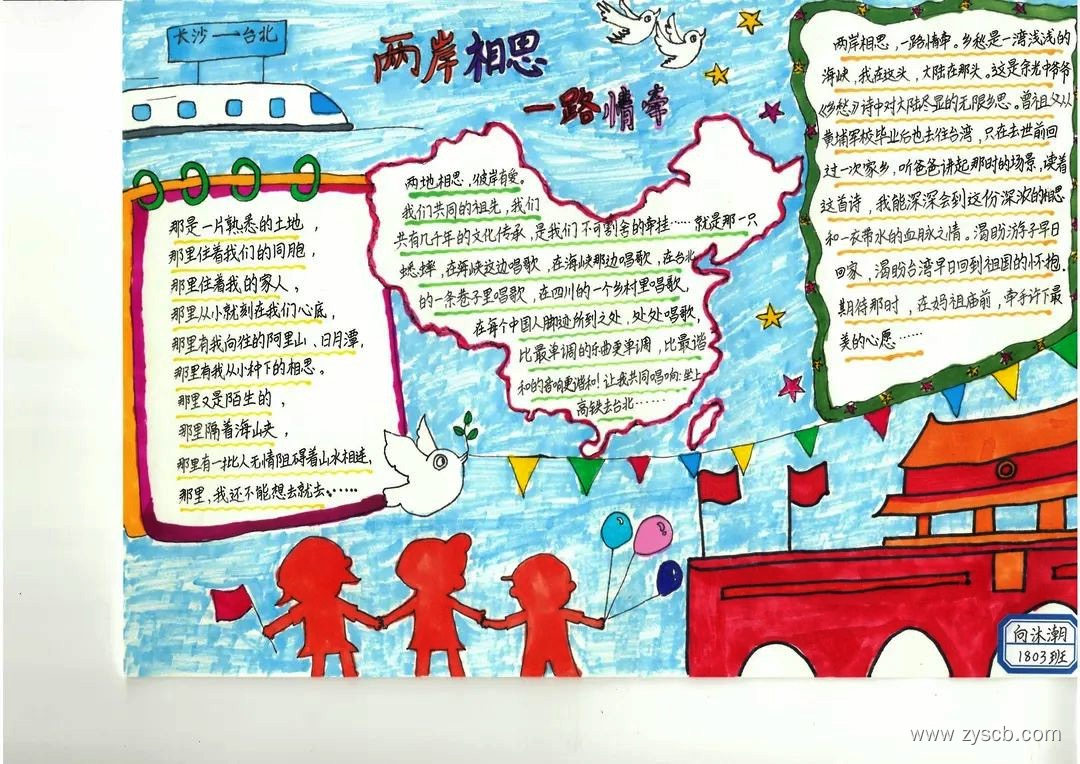 长沙—台北
两岸相思
一路情牵
那是一片熟悉的土地，
那里住着我们的同胞，
那里住着我的家人，
那里从小就刻在我们心底，
那里有我向往的阿里山、日月潭，
那里有我从小种下的相思。
那里又是陌生的，
那里隔着海山夹，
那里有一批人无情阻碍着山水相连，
那里，我还不能想去就去……
两地相思，彼岸有爱。
我们共同的祖先，我们
共有几千年的文化传承，是我们不可割舍的牵挂……就是那一只
蟋蟀，在海峡这边唱歌，在海峡那边唱歌，在台北
的一条巷子里唱歌，在四川的一个乡村里唱歌，
在每个中国人脚迹所到之处，处处唱歌，
比最单调的乐曲更单调，比最谐
和的音响更谐和！让我共同唱响：坐上
高铁去台北……
两岸相思，一路情牵。乡愁是一湾浅浅的
海峡，我在这头，大陆在那头。这是余光中爷爷
《乡愁》诗中对大陆尽显的无限乡思。曾祖父从
黄埔军校毕业后也去往台湾，只在去世前回
过一次家乡，听爸爸讲起那时的场景，读着
这首诗，我能深深会到这份深浓的相思
和一衣带水的血脉之情。渴盼游子早日
回家，渴盼台湾早日回到祖国的怀抱.
期待那时，在妈祖庙前，牵手许下最
美的心愿……
向沐潮
1803班
www.zyscb.com